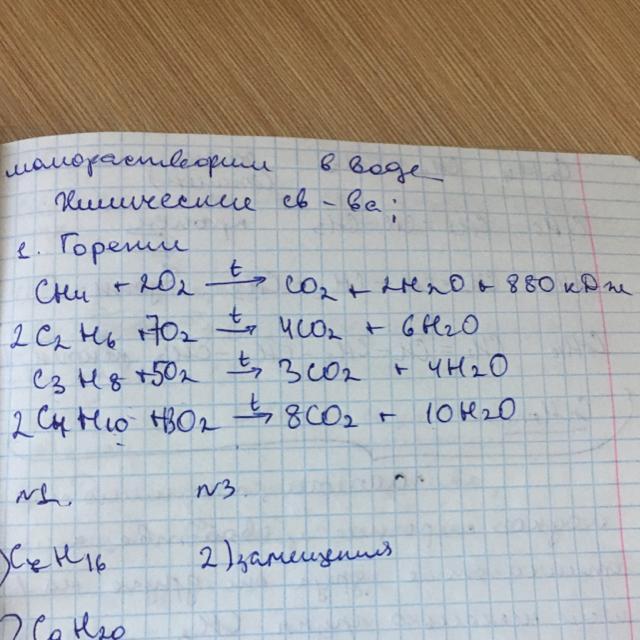 малорастворим в воде
Химические св-ва:
1. Горение
CH4 + 2O2 →t CO2 + 2H2O + 880 кДж
2C2H6 + 7O2 →t 4CO2 + 6H2O
C3H8 + 5O2 →t 3CO2 + 4H2O
2C4H10 + 13O2 →t 8CO2 + 10H2O
N1. N3.
) C7H16 2) замещения
) C9H20